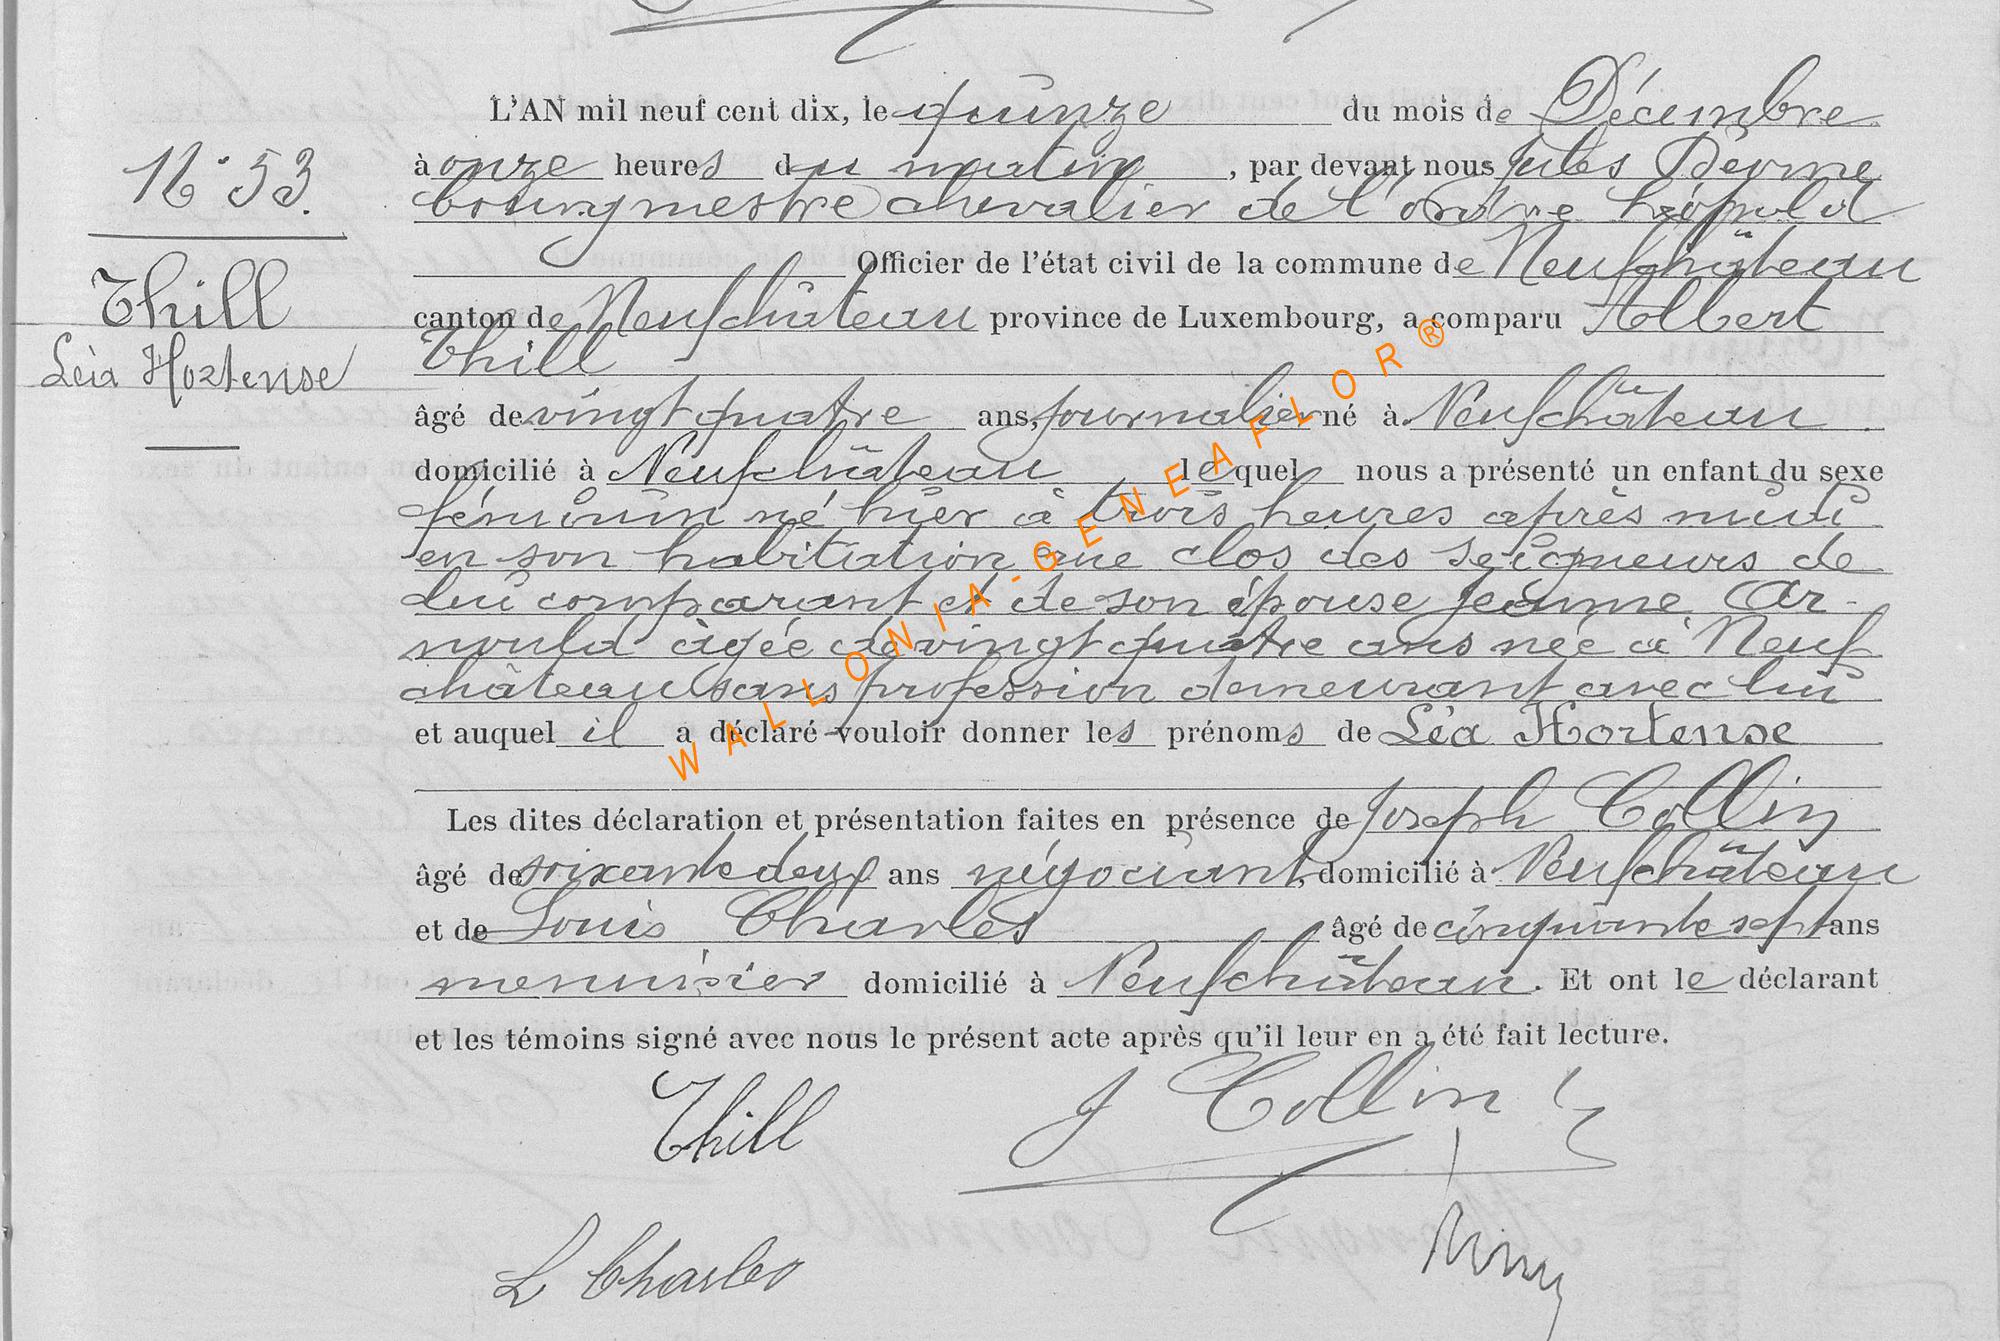 N° 53.
Thill
Léa Hortense
L'AN mil neuf cent dix, le quinze du mois de Décembre
à onze heures du matin, par devant nous Jules
bourgmestre chevalier de l'ordre Léopold
Officier de l'état civil de la commune de Neufchâteau
canton de Neufchâteau province de Luxembourg, a comparu Albert
Thill
âgé de vingt quatre ans, journalier né à Neufchâteau
domicilié à Neufchâteau lequel nous a présenté un enfant du sexe
féminin né hier à trois heures après midi
en son habitation rue clos des seigneurs de
lui comparant et de son épouse Jeanne Ar-
nould âgée de vingt quatre ans née à Neuf
château sans profession demeurant avec lui
et auquel il a déclaré vouloir donner les prénoms de Léa Hortense
Les dites déclaration et présentation faites en présence de Joseph Collin
âgé de soixante deux ans négociant, domicilié à Neufchâteau
et de Louis Charles âgé de cinquante sept ans
menuisier domicilié à Neufchâteau. Et ont le déclarant
et les témoins signé avec nous le présent acte après qu'il leur en a été fait lecture.
Thill J Collin
L Charles
WALLONIA-GENEAFLOR®